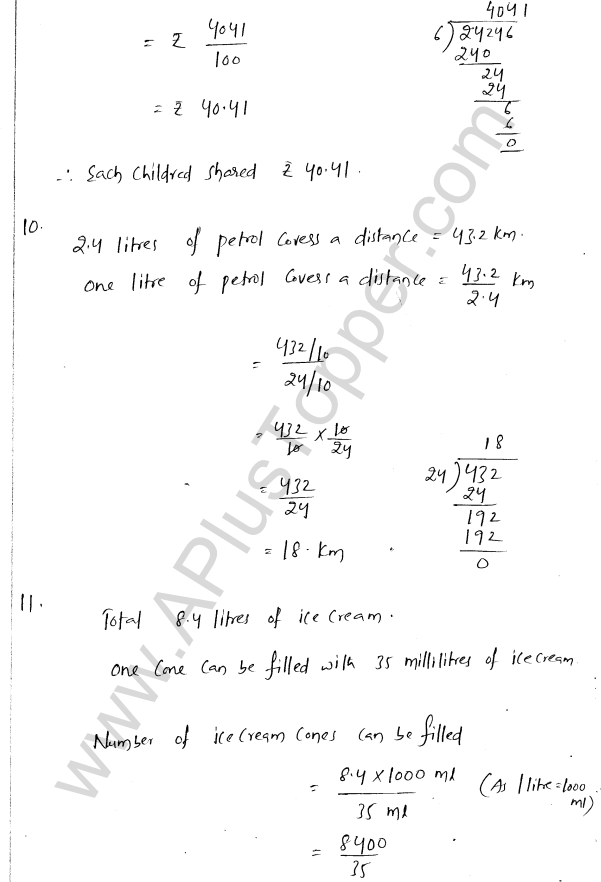 = ₹ 4041/100
4041
6) 24246
240
24
24
6
6
0
= ₹ 40.41
∴ Each Childred Shared ₹ 40.41.
10.
2.4 litres of petrol Covess a distance = 43.2 km.
One litre of petrol Covess a distance = 43.2/2.4 km
= 432/10 / 24/10
= 432/10 × 10/24
= 432/24
= 18. km
18
24) 432
24
192
192
0
11.
Total 8.4 litres of ice cream.
One Cone Can be filled with 35 millilitres of icecream
Number of ice Cream Cones Can be filled
= 8.4 × 1000 ml / 35 ml (As 1 litre = 1000 ml)
= 8400/35
www.APlusTopper.com